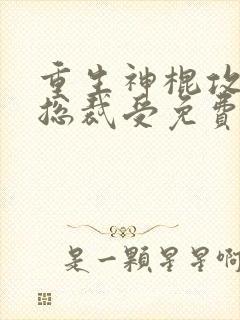 重生神棍攻
总裁受免费
是一顆星星啊